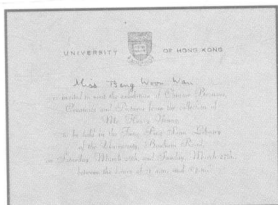 UNIVERSITY OF HONG KONG
Miss Bang Woon Wan
is invited to visit the exhibition of Chinese Bronzes,
Ceramics and Pictures from the collection of
to be held in the Fung Ping Shan Library
of the University, Bonham Road,
on Saturday, March 26th and Sunday, March 27th,
between the hours of